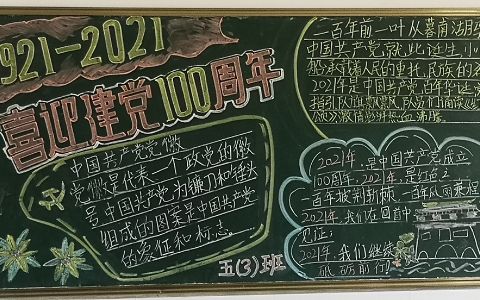 1921-2021
喜迎建党100周年
中国共产党党徽
党徽是代表一个政党的徽
号,中国共产党,为镰刀和锤头
组成的图案是中国共产党
的象征和标志。
五(3)班
二百年前一叶从暮南湖
中国共产党就此诞生,小
船承载着人民的重托,民族的
2021年是中国共产党百年华诞
指引队
2021年,是中国共产党成立
100周年,2021年,是
一百年披荆斩棘,一百年风雨兼程
2021年,我们在回首中
见证:
2021年,我们继续
砥砺前行!